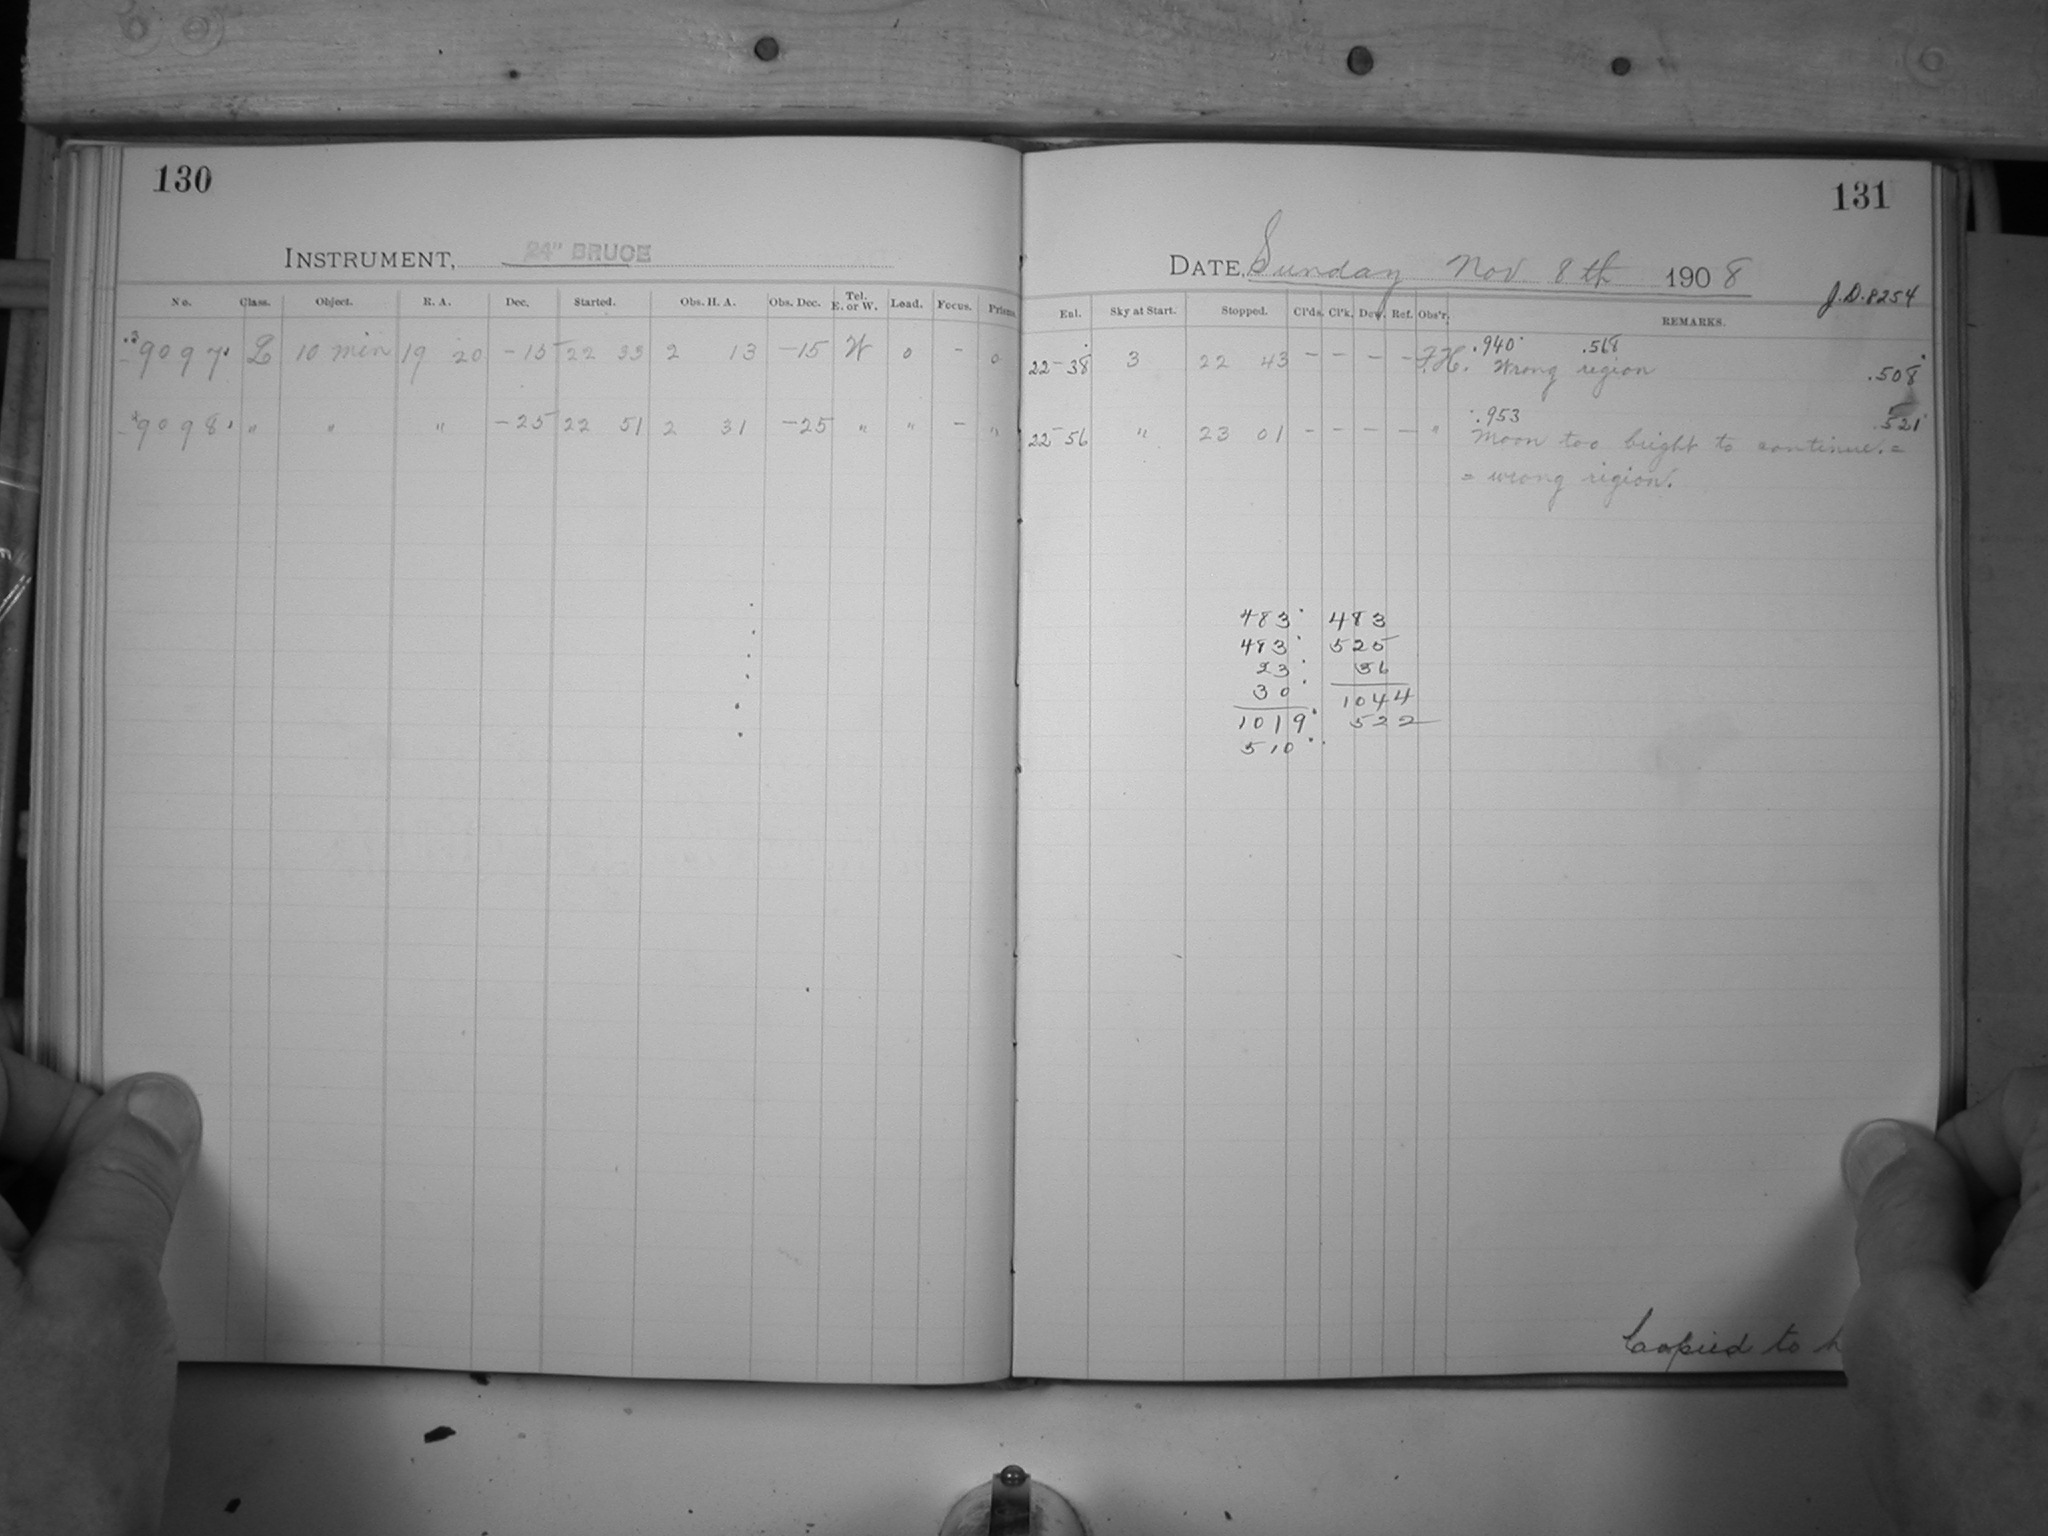 130
INSTRUMENT, 24" BRUCE
No. Class. Object. R. A. Dec. Started. Obs. H. A. Obs. Dec. Tel. E. or W. Load. Focus. Prisms.
9097 L 10 min 19 20 -15 22 33 2 13 -15 W 0 - 0
9098 " " " -25 22 51 2 31 -25 " " - "
131
DATE, Sunday Nov 8th 1908
J.D. 8254
Enl. Sky at Start. Stopped. Cl'ds. Cl'k. Dew. Ref. Obs'r. REMARKS.
.940 .568
22-38 3 22 43 - - - - F.H. Wrong region .508
.953 .521
22-56 " 23 01 - - - - " Moon too bright to continue. =
= wrong region.
483 483
483 525
23 36
30 1044
1019 522
510
Copied to